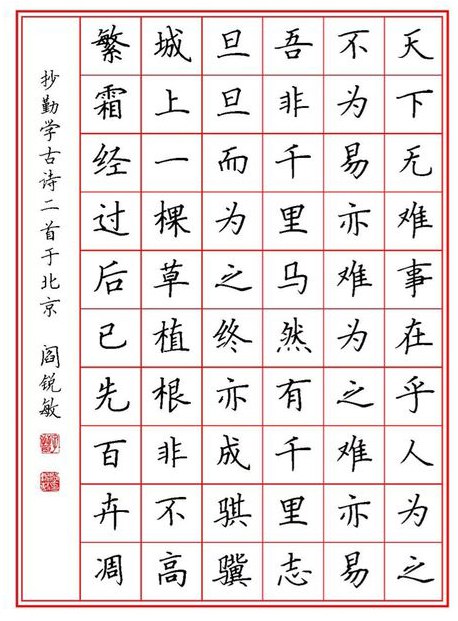 天下无难事在乎人为之
不为易亦难为之难亦易
吾非千里马然有千里志
旦旦而为之终亦成骐骥
城上一棵草植根非不高
繁霜经过后已先百卉凋
抄勤学古诗二首于北京 阎锐敏